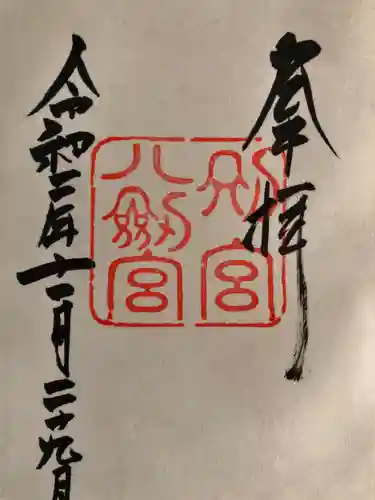 奉拝
別宮
八劔宮
令和二年十一月二十九日